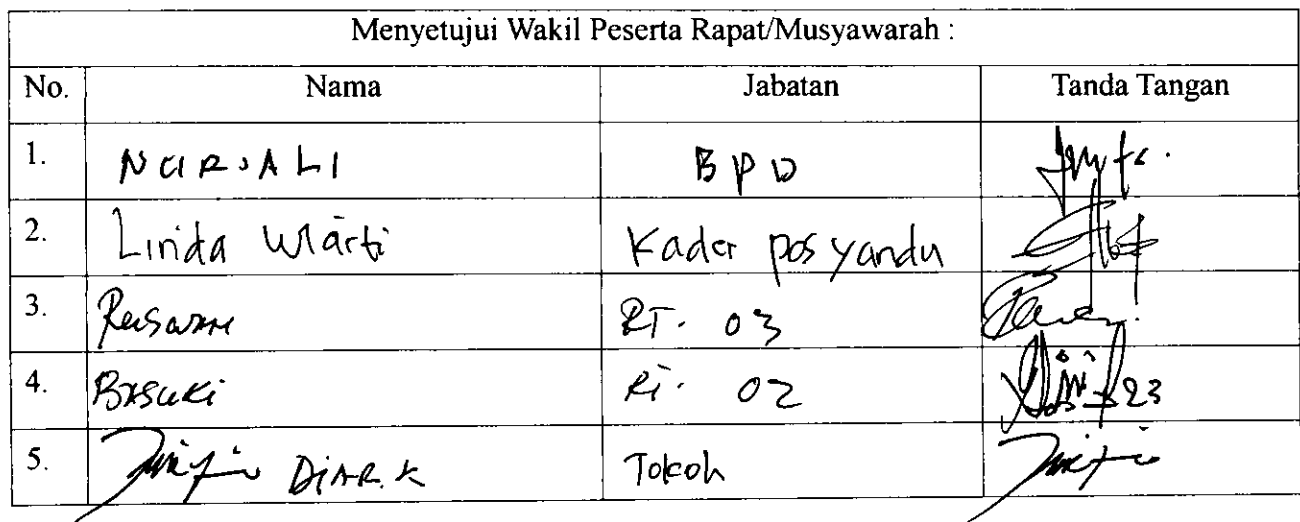 Menyetujui Wakil Peserta Rapat/Musyawarah :
No. Nama Jabatan Tanda Tangan
1. NURSALI BPD
2. Linda Wiarti Kader posyandu
3. RT. 03
4. Basuki RT. 02
5. DiAR.K Tokoh